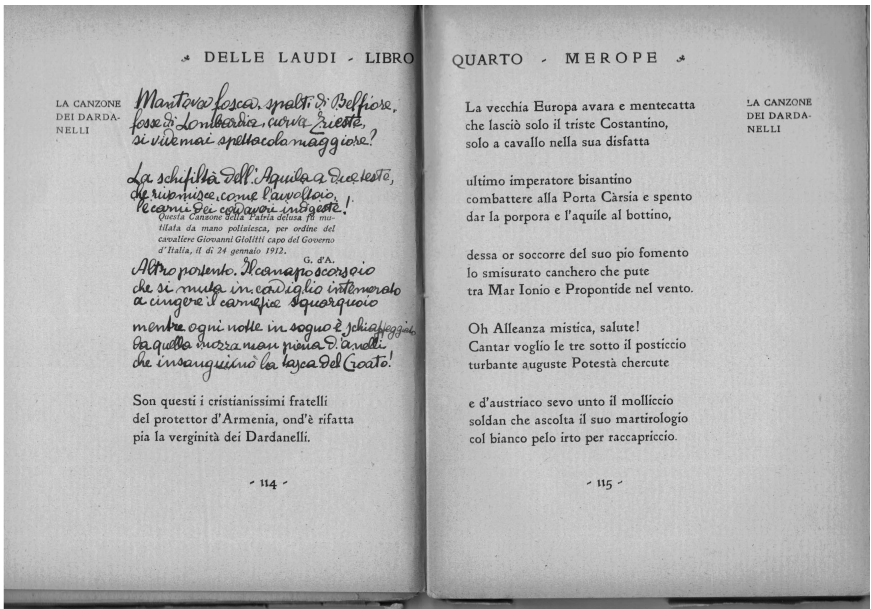 DELLE LAUDI - LIBRO
LA CANZONE
DEI DARDA-
NELLI
Mantova fosca, spalti di Belfiore,
fosse di Lombardia, curva Trieste,
si vide mai spettacolo maggiore?
La schifiltà dell'Aquila a due teste,
che rivomisce, come l'avvoltoio,
le carni dei cadaveri indigeste!
Questa Canzone della Patria delusa fu mu-
tilata da mano poliziesca, per ordine del
cavaliere Giovanni Giolitti capo del Governo
d'Italia, il dì 24 gennaio 1912.
G. d'A.
Altro portento. Il canapo scorsoio
che si muta in cordiglio intemerato
a cingere il carnefice squarquoio
mentre ogni notte in sogno è schiaffeggiato
da quella mozza man piena d'anelli
che insanguinò la tasca del Croato!
Son questi i cristianissimi fratelli
del protettor d'Armenia, ond'è rifatta
pia la verginità dei Dardanelli.
- 114 -
QUARTO - MEROPE
LA CANZONE
DEI DARDA-
NELLI
La vecchia Europa avara e mentecatta
che lasciò solo il triste Costantino,
solo a cavallo nella sua disfatta
ultimo imperatore bisantino
combattere alla Porta Càrsia e spento
dar la porpora e l'aquile al bottino,
dessa or soccorre del suo pio fomento
lo smisurato canchero che pute
tra Mar Ionio e Propontide nel vento.
Oh Alleanza mistica, salute!
Cantar voglio le tre sotto il posticcio
turbante auguste Potestà chercute
e d'austriaco sevo unto il molliccio
soldan che ascolta il suo martirologio
col bianco pelo irto per raccapriccio.
- 115 -